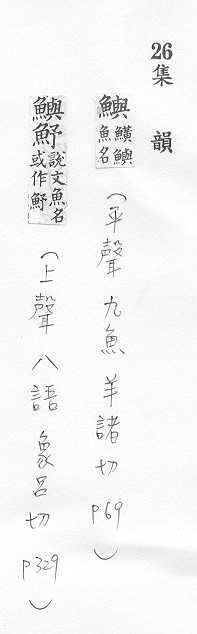 26
集韻
鱮 鱑鱮魚名 (平聲 九魚 羊諸切 p69)
鱮魣 說文魚名或作魣 (上聲 八語 象呂切 p329)